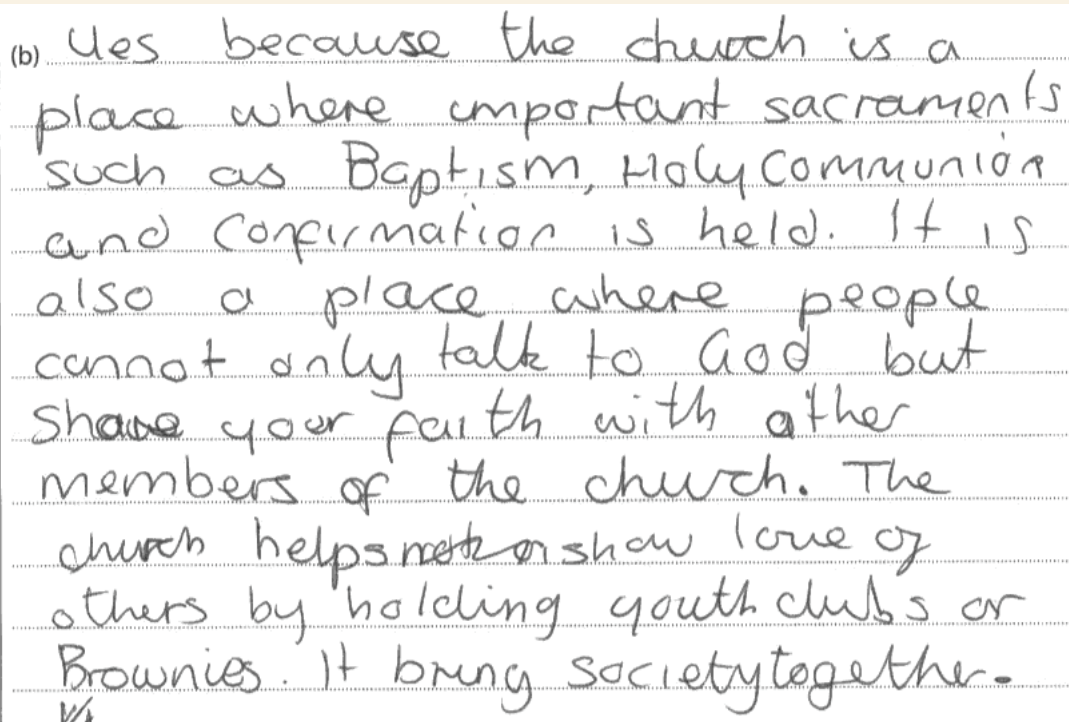 (b) Yes because the church is a
place where important sacraments
such as Baptism, Holy Communion
and Confirmation is held. It is
also a place where people
cannot only talk to God but
share your faith with other
members of the church. The
church helps show love of
others by holding youth clubs or
Brownies. It bring society together.